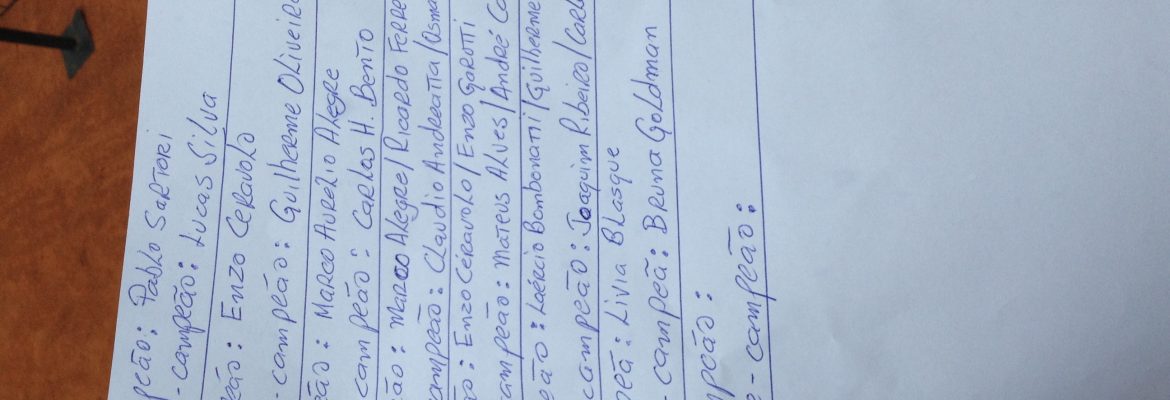 peão: Pablo Sartori
- campeão: Lucas Silva
eão: Enzo Ceravolo
- campeão: Guilherme Oliveira
eão: Marco Aurelio Alegre
campeão: Carlos H. Bento
ão: Marco Alegre/Ricardo Ferre
ampeão: Claudio Andreatta/Osma
ão: Enzo Ceravolo/Enzo Gorotti
ampeão: Mateus Alves/André Co
eão: Laércio Bombonati/Guilherme
campeão: Joaquim Ribeiro/Carl
peã: Livia Blasque
- campeã: Bruna Goldman
mpeão:
e - campeão: